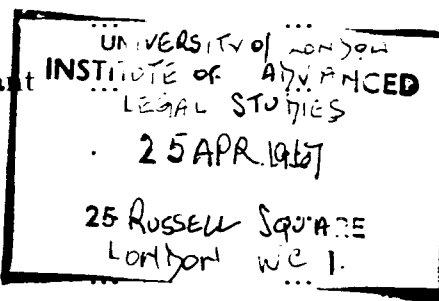 UNIVERSITY of LONDON
INSTITUTE OF ADVANCED
LEGAL STUDIES
25 APR 1957
25 RUSSELL SQUARE
LONDON WC 1.